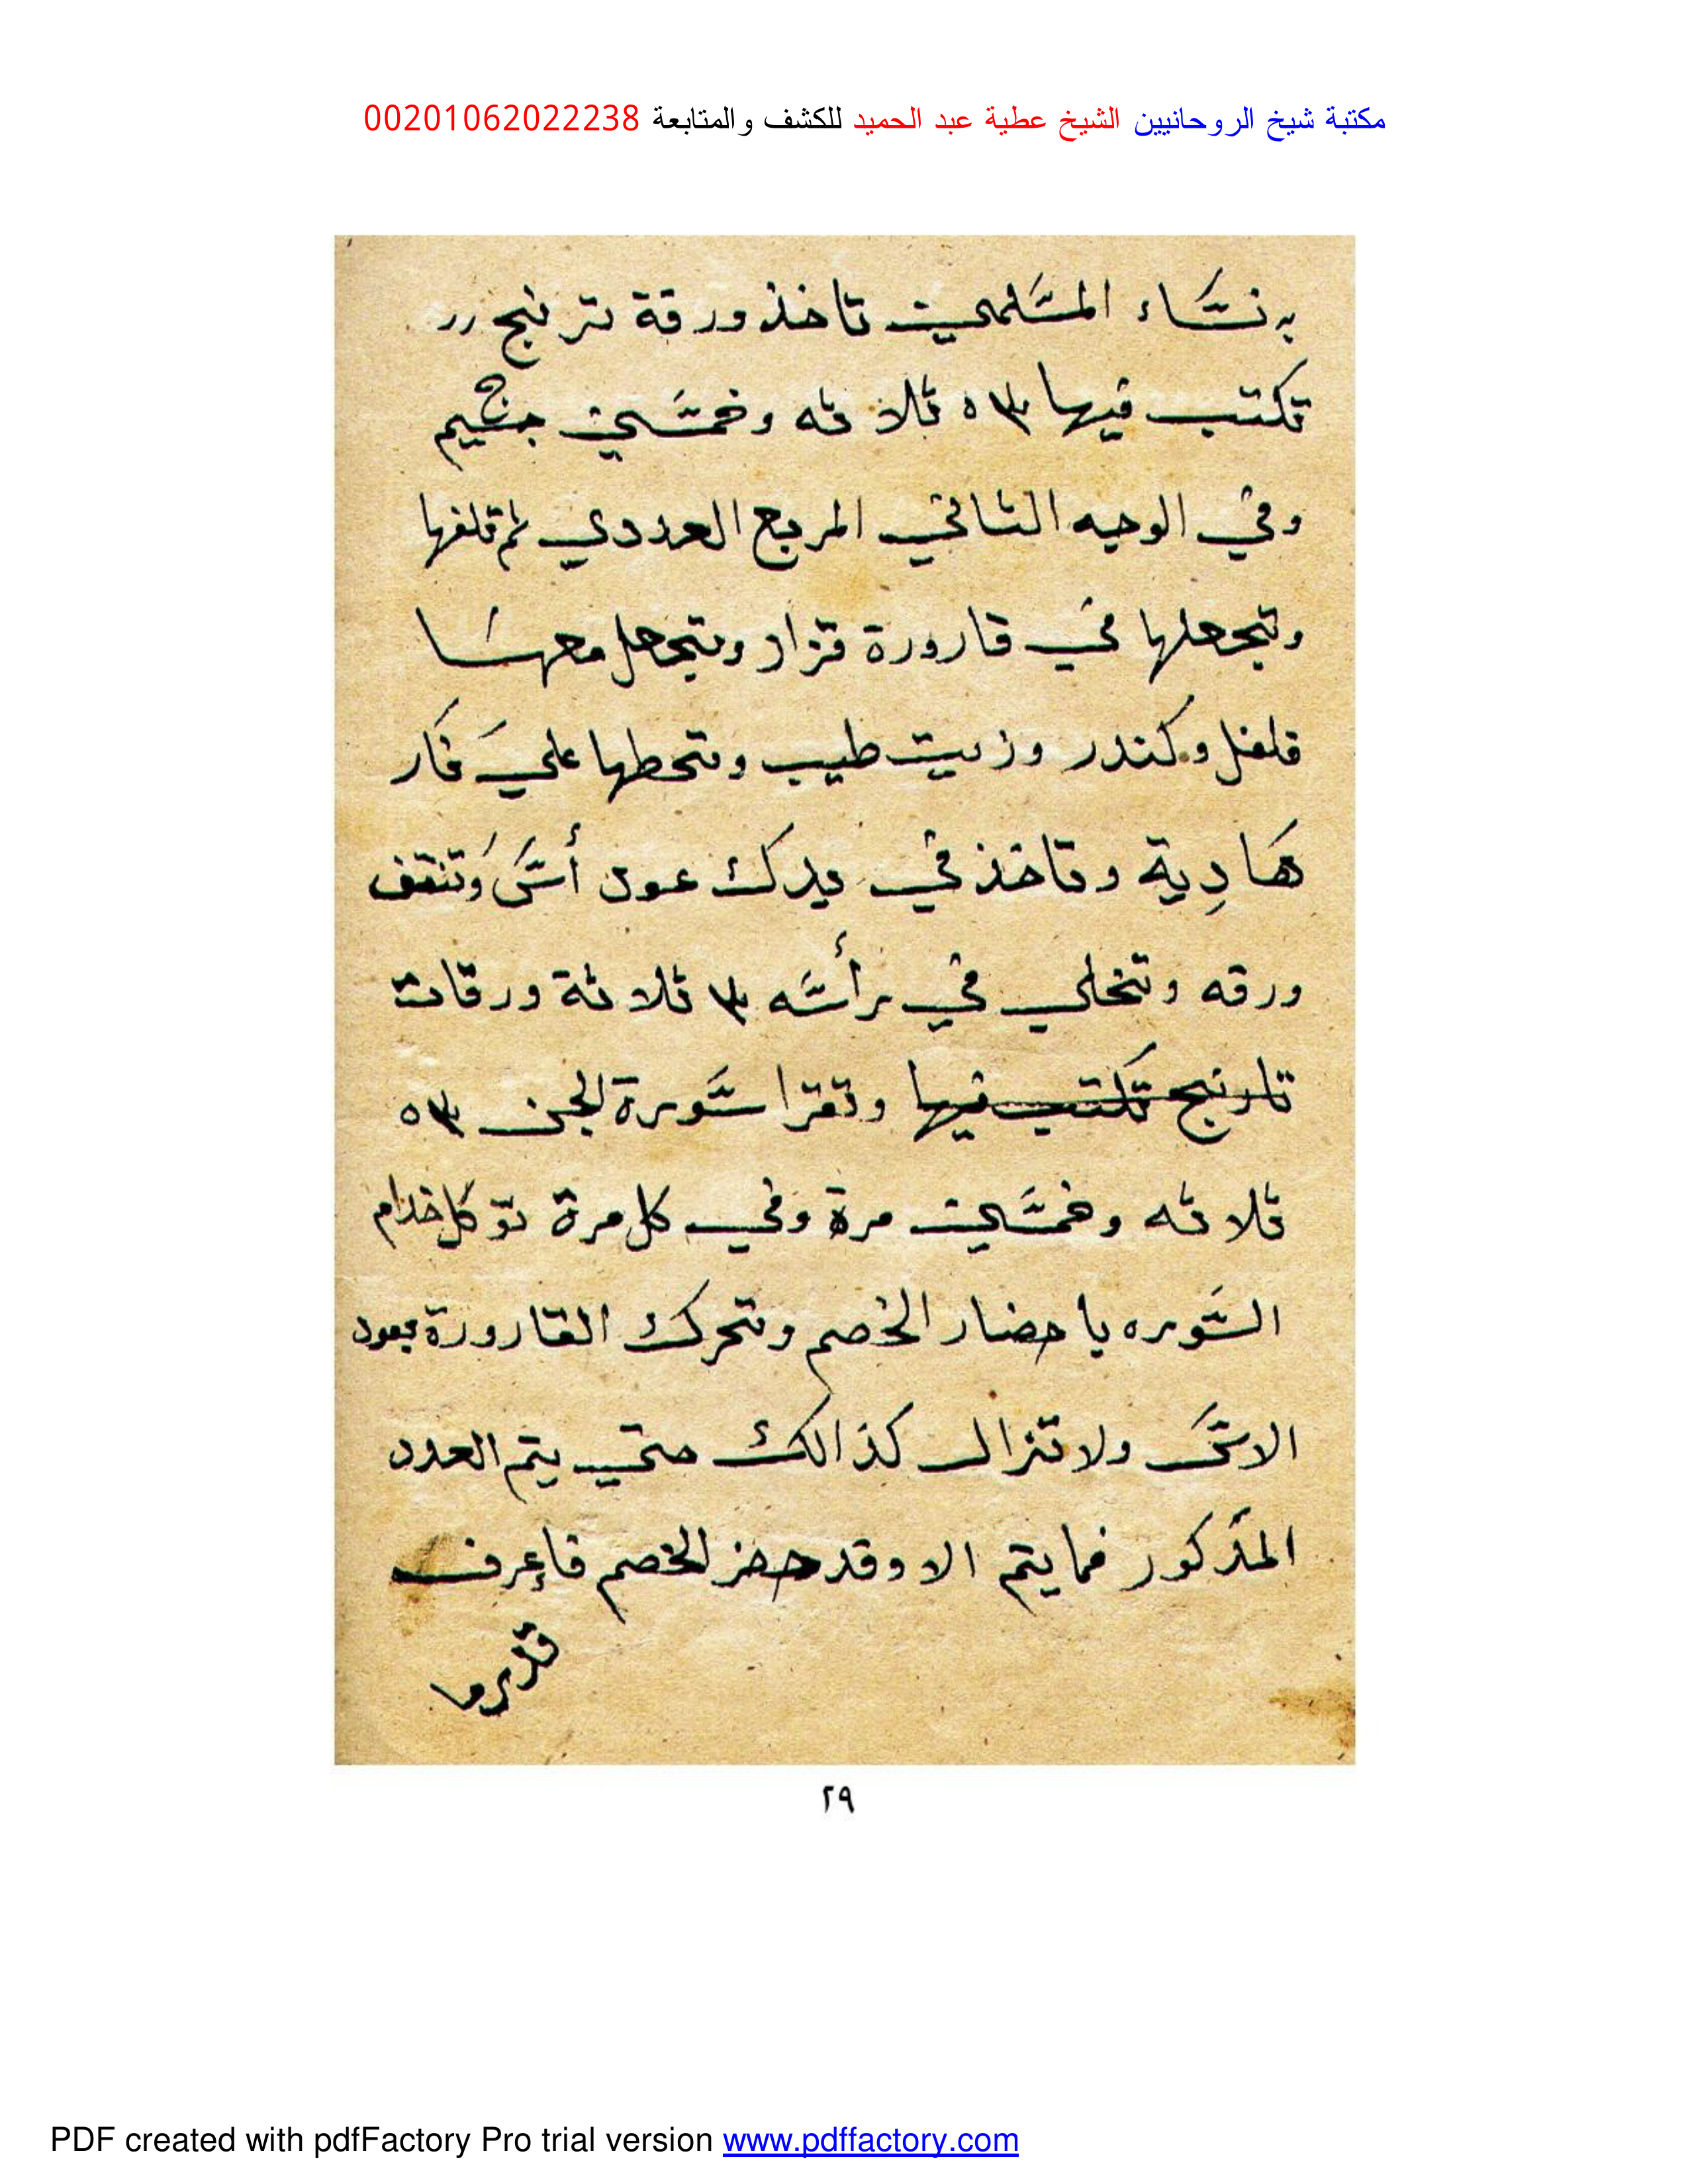 مكتبة شيخ الروحانيين الشيخ عطية عبد الحميد للكشف والمتابعة 00201062022238
به نساء المسلمين تاخذ ورقة ترنج
تكتب فيها ٥٣ ثلاثه وخمسين جيم ج
وفي الوجه الثاني المربع العددي ثم تلفها
وتجعلها في قارورة قزاز وتجعل معها
فلفل وكندر وزيت طيب وتحطها علي نار
هادية وتاخذ في يدك عود أس وتنقف
ورقه وتخلي في رأسه ٣ ثلاثة ورقات
تارنج تكتب فيها وتقرا سورة الجن ٥٣
ثلاثه وخمسين مرة وفي كل مرة توكل خدام
السوره باحضار الخصم وتحرك القارورة بعود
الاس ولا تزال كذالك حتي يتم العدد
المذكور فما يتم الا وقد حضر الخصم فاعرف
قدرما
٢٩
PDF created with pdfFactory Pro trial version www.pdffactory.com